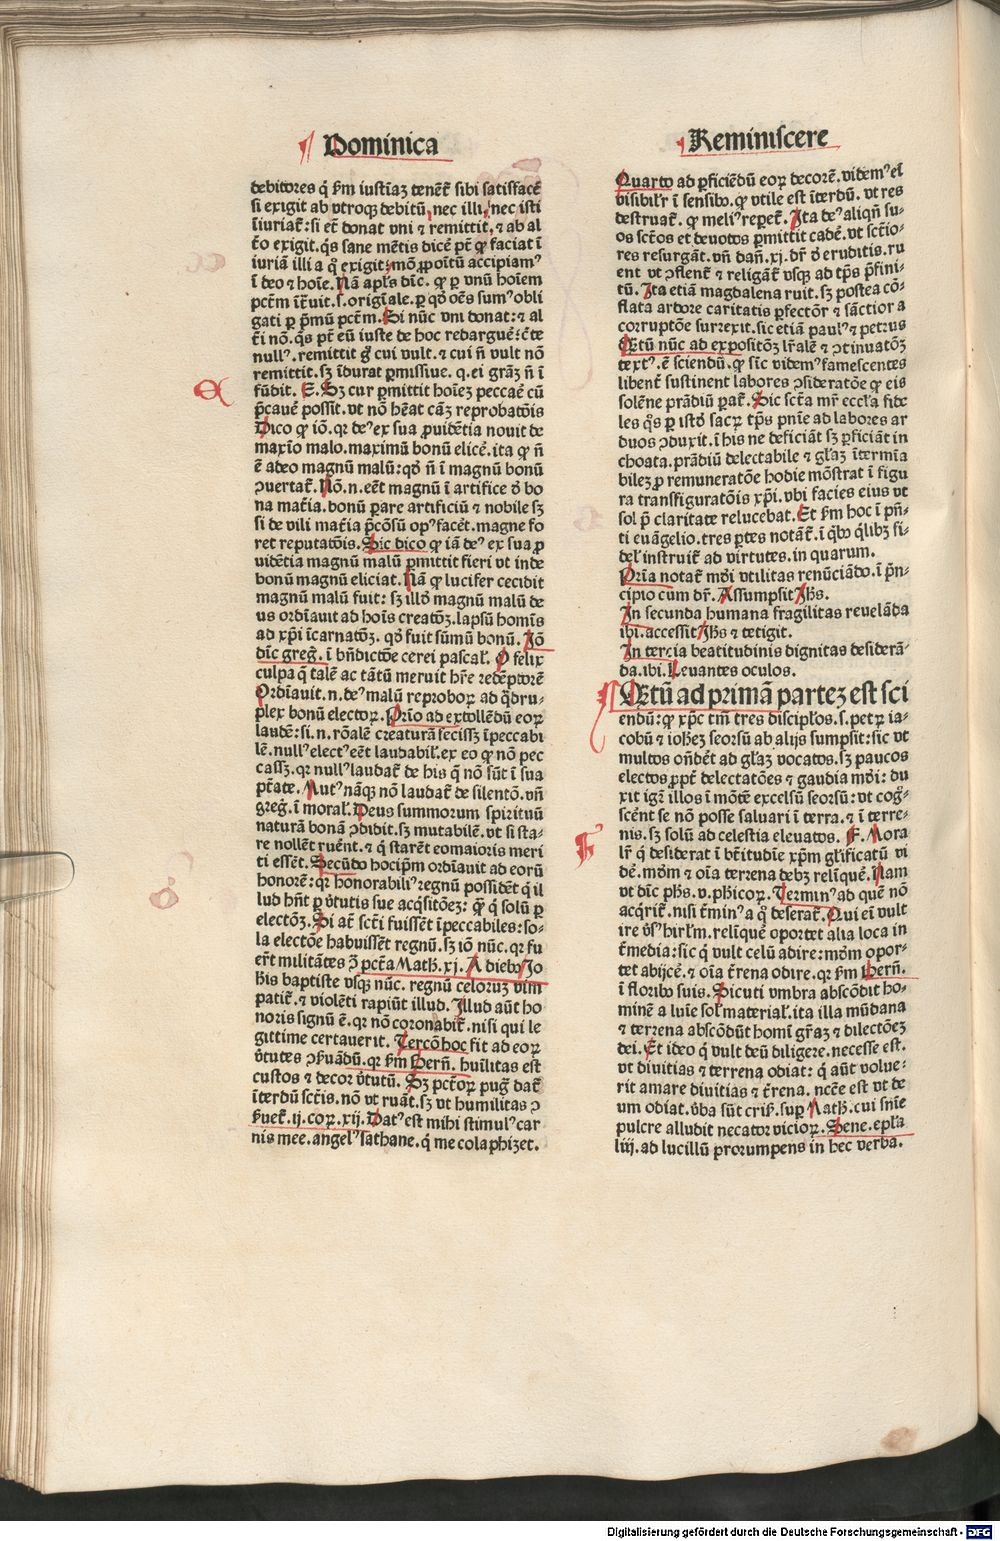 Dominica
debitores q̃ ẜm iustiaʒ tenẽt̃ sibi satisfacẽ
si exigit ab vtroqʒ debitũ, nec illi, nec isti
ĩiuriat̃: si et̃ donat vni ⁊ remittit, ⁊ ab al
t̃o exigit. q̃s sane mẽtis dicẽ pt̃ ꝙ faciat ĩ
iuriã illi a q̊ exigit: mõ ꝓpoĩtũ accipiamꝰ
ĩ deo ⁊ hoĩe. Nã apl̃s dĩc. ꝙ ꝑ vnũ hoĩem
pctm̃ ĩt̃uit. s. origĩale. ꝑ qđ oẽs sumꝰ obli
gati ꝑ p̃mũ pctm̃. Si nũc vni donat: ⁊ al
t̃i nõ. q̃s pt̃ eũ iuste de hoc redarguẽ: c̃te
nullꝰ. remittit g̊ cui vult. ⁊ cui ñ vult nõ
remittit. sʒ ĩdurat ꝑmissiue. q. ei grãʒ ñ ĩ
fũdit. E. Sʒ cur ꝑmittit hoĩeʒ peccaẽ cũ
p̃cauẽ possit. vt nõ hẽat cãʒ reprobatõis
Dico ꝙ iõ. qr deꝰ ex sua ꝓuidẽtia nouit de
maxĩo malo. maximũ bonũ elicẽ. ita ꝙ ñ
ẽ adeo magnũ malũ: qđ ñ ĩ magnũ bonũ
ↄuertat̃. Nõ. n. eẽt magnũ ĩ artifice đ bo
na mat̃ia. bonũ ꝑare artificiũ ⁊ nobile sʒ
si de vili mat̃ia p̃cõsũ opꝰ facẽt. magne fo
ret reputatõis. Sic dico ꝙ iã deꝰ ex sua ꝓ
uidẽtia magnũ malũ ꝑmittit fieri vt inde
bonũ magnũ eliciat. Nã ꝙ lucifer cecidit
magnũ malũ fuit: sʒ illđ magnũ malũ de
us ordiauit ad hoĩs creatõʒ. lapsũ homĩs
ad xp̃i ĩcarnatõʒ. qđ fuit sũmũ bonũ. Iõ
dĩc greg̃. ĩ bñdictõe cerei pascal̃. O felix
culpa q̃ talẽ ac tãtũ meruit hr̃e redẽptorẽ
Ordiauit. n. deꝰ malũ reproboꝝ ad q̃dru-
plex bonũ electoꝝ. Pr̃io ad extollẽdũ eoꝝ
laudẽ: si. n. rõalẽ creaturã fecissʒ ĩpeccabi
lẽ. nullꝰ electꝰ eẽt laudabil̃. ex eo ꝙ nõ pec
cassʒ. qr nullꝰ laudat̃ de his q̃ nõ sũt ĩ sua
pt̃ate. Mutꝰ nãqʒ nõ laudat̃ de silentõ. vñ
greg̃. ĩ moral̃. Deus summorum spirituũ
naturã bonã ↄdidit. sʒ mutabilẽ. vt si sta-
re nollẽt ruẽnt. ⁊ q̃ starẽt eo maioris meri
ti essẽt. Secũdo hoc ip̃m ordiauit ad eorũ
honorẽ: qr honorabiliꝰ regnũ possidẽt q̃ il
lud hñt ꝑ v̾tutis sue acq̃sitõeʒ: q̃ȝ q̃ solũ ꝑ
electõʒ. Si at̃ sct̃i fuissẽt ĩpeccabiles: so-
la electõe habuissẽt regnũ. sʒ iõ nũc. qr fu
er̃t militãtes ↄ̃ pct̃a Math. xj. A diebꝰ Jo
hĩs baptiste vsqʒ nũc. regnũ celoruʒ vim
patit̃. ⁊ violẽti rapiũt illud. Illud aũt ho
noris signũ ẽ. qr nõ coronabit̃. nisi qui le
gittime certauerit. Tercõ hoc fit ad eoꝝ
v̾tutes ↄẜuãdũ. qr ẜm Bern̄. huĩlitas est
custos ⁊ decor v̾tutũ. Sʒ pctõꝝ pug̃ dat̃
ĩterdũ sct̃is. nõ vt ruãt. sʒ vt humilitas ↄ
ẜuet̃. ij. coꝝ. xij. Datꝰ est mihi stimulꝰ car
nis mee. angelꝰ sathane. q̃ me colaphiʒet.
Reminiscere
Quarto ad ꝑficiẽdũ eoꝝ decorẽ. videmꝰ eĩ
visibilĩr ĩ sensibꝰ. ꝙ vtile est ĩterdũ. vt res
destruat̃. ꝙ meliꝰ repet̃. Ita deꝰ aliqñ su-
os sct̃os et deuotos ꝑmittit cadẽ. vt sct̃io-
res resurgãt. vñ dañ. xj. dr̃ đ eruditis. ru
ent vt ↄflent̃ ⁊ religãt̃ vsqʒ ad tp̃s p̃fini-
tũ. Ita etiã magdalena ruit. sʒ postea cõ-
flata ardore caritatis ꝑfectõr ⁊ sãctior a
corruptõe surrexit. sic etiã paulꝰ ⁊ petrus
Qȝtũ nũc ad expositõʒ lr̃alẽ ⁊ ↄtinuatõʒ
textꝰ. ẽ sciendũ. ꝙ sĩc videmꝰ famescentes
libent̃ sustinent labores ↄsideratõe ꝙ eis
solẽne prãdiũ ꝑat̃. Sic sct̃a mr̃ eccl̃a fide
les q̃s ꝑ istđ sacꝝ tp̃s pnĩe ad labores ar
duos ↄduxit. ĩ his ne deficiãt sʒ ꝑficiãt in
choata. prãdiũ delectabile ⁊ gl̃aʒ ĩtermĩa
bileʒ ꝓ remuneratõe hodie mõstrat ĩ figu
ra transfiguratõis xp̃i. vbi facies eius vt
sol p̃ claritate relucebat. Et ẜm hoc ĩ pñ-
ti euãgelio. tres ꝑtes notãt̃. ĩ q̃bꝰ q̃libʒ fi-
del̃ instruit̃ ad virtutes. in quarum.
Pr̃ia notat̃ mđi vtilitas renũciãdo. ĩ p̃n-
cipio cum dr̃. Assumpsit Ihs̃.
In secunda humana fragilitas reuelãda
ibi. accessit Ihs̃ ⁊ tetigit.
In tercia beatitudinis dignitas desiderã-
da. ibi. Leuantes oculos.
Qȝtũ ad primã parteʒ est sci
endũ: ꝙ xp̃c tm̃ tres discip̃los. s. petꝝ ia-
cobũ ⁊ iohẽʒ seorsũ ab alijs sumpsit: sic vt
multos oñdẽt ad gl̃aʒ vocatos. sʒ paucos
electos ꝓpt̃ delectatões ⁊ gaudia mđi: du
xit igĩ illos ĩ mõtẽ excelsũ seorsũ: vt cog̃-
scẽnt se nõ posse saluari ĩ terra. ⁊ ĩ terre-
nis. sʒ solũ ad celestia eleuatos. F. Mora
lr̃ q̃ desiderat ĩ bt̃itudĩe xp̃m gl̃ificatũ vi
dẽ. mđm ⁊ oĩa terrena debʒ relĩquẽ. Nam
vt dĩc phs̃. v. phicoꝝ. Terminꝰ ad quẽ nõ
acq̃rit̃. nisi t̃minꝰ a q̊ deserat̃. Qui eĩ vult
ire v̾sꝰ hirl̃m. relĩquẽ oportet alia loca in
t̃media: sic q̃ vult celũ adire: mđm opor-
tet abijcẽ. ⁊ oĩa t̃rena odire. qr ẜm Bern̄.
ĩ floribꝰ suis. Sicuti vmbra abscõdit ho-
minẽ a luĩe sol̃ material̃. ita illa mũdana
⁊ terrena abscõdũt homĩ gr̃aʒ ⁊ dilectõeʒ
dei. Et ideo q̃ vult deũ diligere. necesse est.
vt diuitias ⁊ terrena odiat: q̃ aũt volue-
rit amare diuitias ⁊ t̃rena. ncc̃e est vt de
um odiat. v̾ba sũt crisꝰ. suꝑ Math. cui sñĩe
pulcre alludit necator vicioꝝ. Sene. epl̃a
liij. ad lucillũ prorumpens in hec verba.
Digitalisierung gefördert durch die Deutsche Forschungsgemeinschaft - DFG